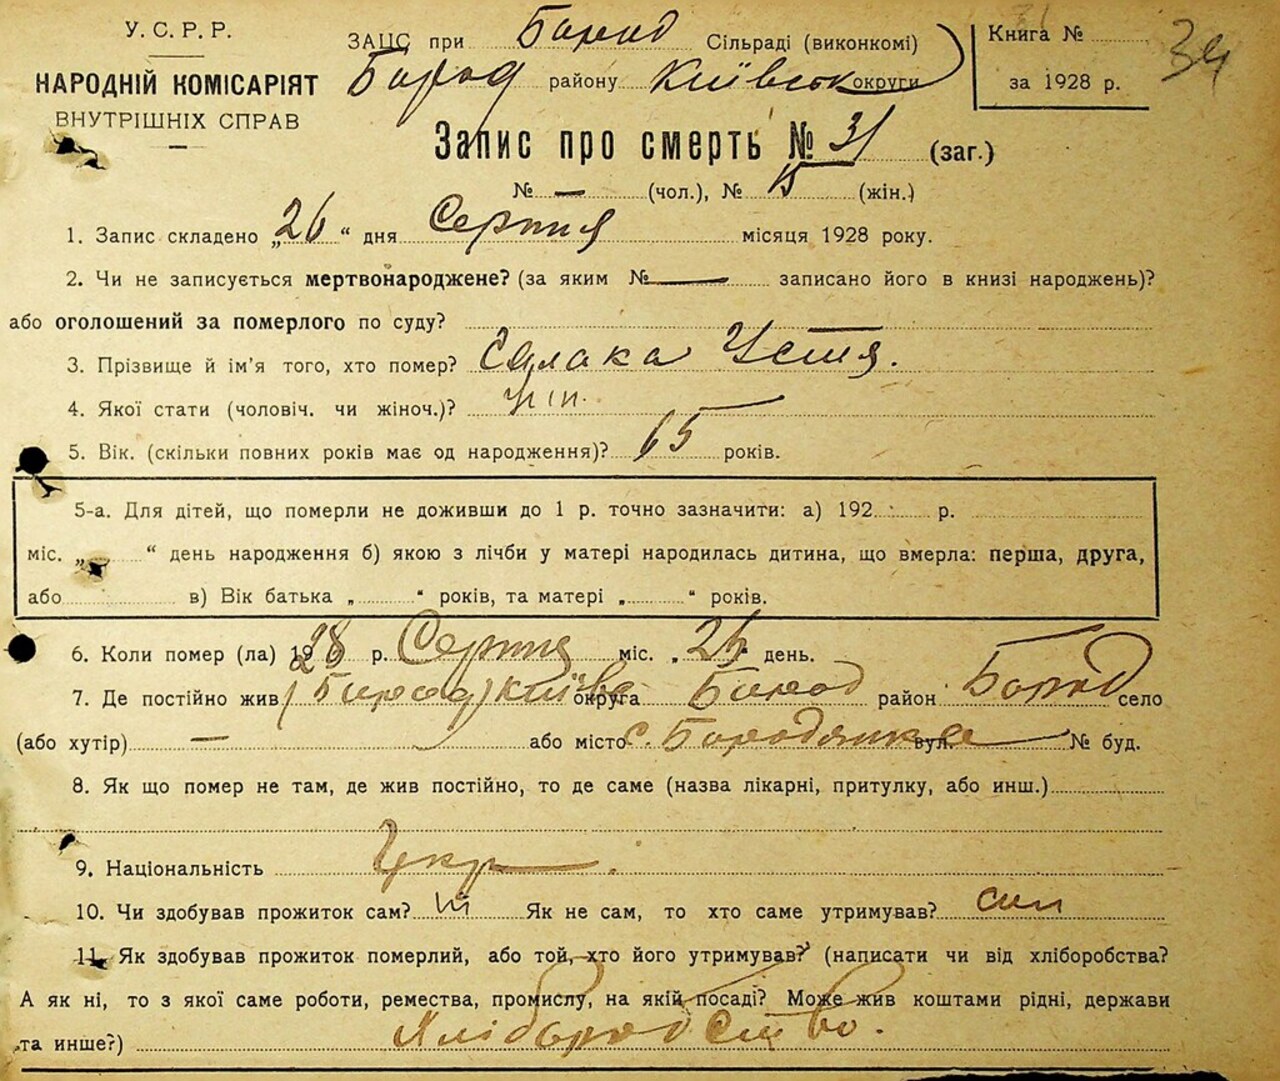 У.С.Р.Р.
НАРОДНІЙ КОМІСАРІЯТ
ВНУТРІШНІХ СПРАВ
ЗАЦС при Бород Сільраді (виконкомі)
Бород району Київськ округи
Книга №
за 1928 р.
34
Запис про смерть № 31 (заг.)
№ — (чол.), № 15 (жін.)
1. Запис складено „26“ дня Серпня місяця 1928 року.
2. Чи не записується мертвонароджене? (за яким № — записано його в книзі народжень)?
або оголошений за померлого по суду?
3. Прізвище й ім'я того, хто помер? Салака Устя.
4. Якої стати (чоловіч. чи жіноч.)? жін.
5. Вік. (скільки повних років має од народження)? 65 років.
5-а. Для дітей, що померли не доживши до 1 р. точно зазначити: а) 192 р.
міс. „ “ день народження б) якою з лічби у матері народилась дитина, що вмерла: перша, друга,
або в) Вік батька „ “ років, та матері „ “ років.
6. Коли помер (ла) 1928 р. Серпня міс. „ день.
7. Де постійно жив (Бород) Київс округа Бород район Бород село
(або хутір) — або місто с. Бородянка вул. № буд.
8. Як що помер не там, де жив постійно, то де саме (назва лікарні, притулку, або инш.)
9. Національність Укр.
10. Чи здобував прожиток сам? ні Як не сам, то хто саме утримував? син
11. Як здобував прожиток померлий, або той, хто його утримував? (написати чи від хліборобства?
А як ні, то з якої саме роботи, ремества, промислу, на якій посаді? Може жив коштами рідні, держави
та инше?) Хліборобство.